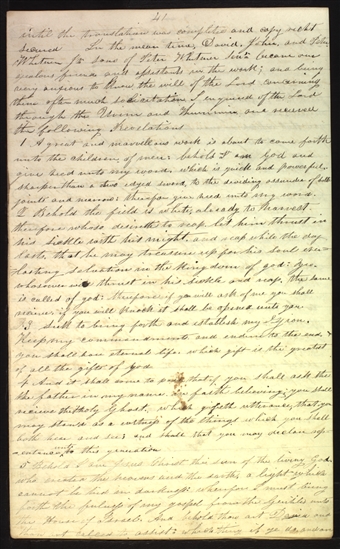 41
until the translation was completed and copy right
secured In the mean time, David, John, and Peter
Whitmer Jr. sons of Peter Whitmer Senr. became our
zealous friends and assistants in the work; and being
very anxious to know the will of the Lord concerning
them after much solicitation I enquired of the Lord
through the Urim and Thummim and received
the following Revelations
1 A great and marvelous work is about to come forth
unto the children of men: behold I am God and
give heed unto my word, which is quick and powerful,
sharper than a two edged sword, to the dividing asunder of both
joints and marrow: therefore give heed unto my word.
2 Behold the field is white, already to harvest
therefore whoso desireth to reap let him thrust in
his sickle with his might, and reap while the day
lasts, that he may treasure up for his soul ever-
lasting salvation in the kingdom of god: Yea,
whosoever will thrust in his sickle and reap, the same
is called of god: therefore, if you will ask of me you shall
receive; if you will knock it shall be opened unto you
3 Seek to bring forth and establish my Zion,
Keep my commandments and endure to the end,
you shall have eternal life: which gift is the greatest
of all the gifts of God
4 And it shall come to pass, that if you shall ask the
the father in my name in faith believing, you shall
receive the Holy Ghost, which giveth utterance, that you
may stand as a witness of the things which you shall
both hear and see; and that you may declare rep-
entance unto this generation
5 Behold I am Jesus Christ the son of the living God,
who created the heavens and the earth; a light which
cannot be hid in darkness wherefore I must bring
forth the fulness of my gospel from the Gentiles unto
the House of Israel. And behold thou art David and
thou art called to assist: which thing if ye do and are